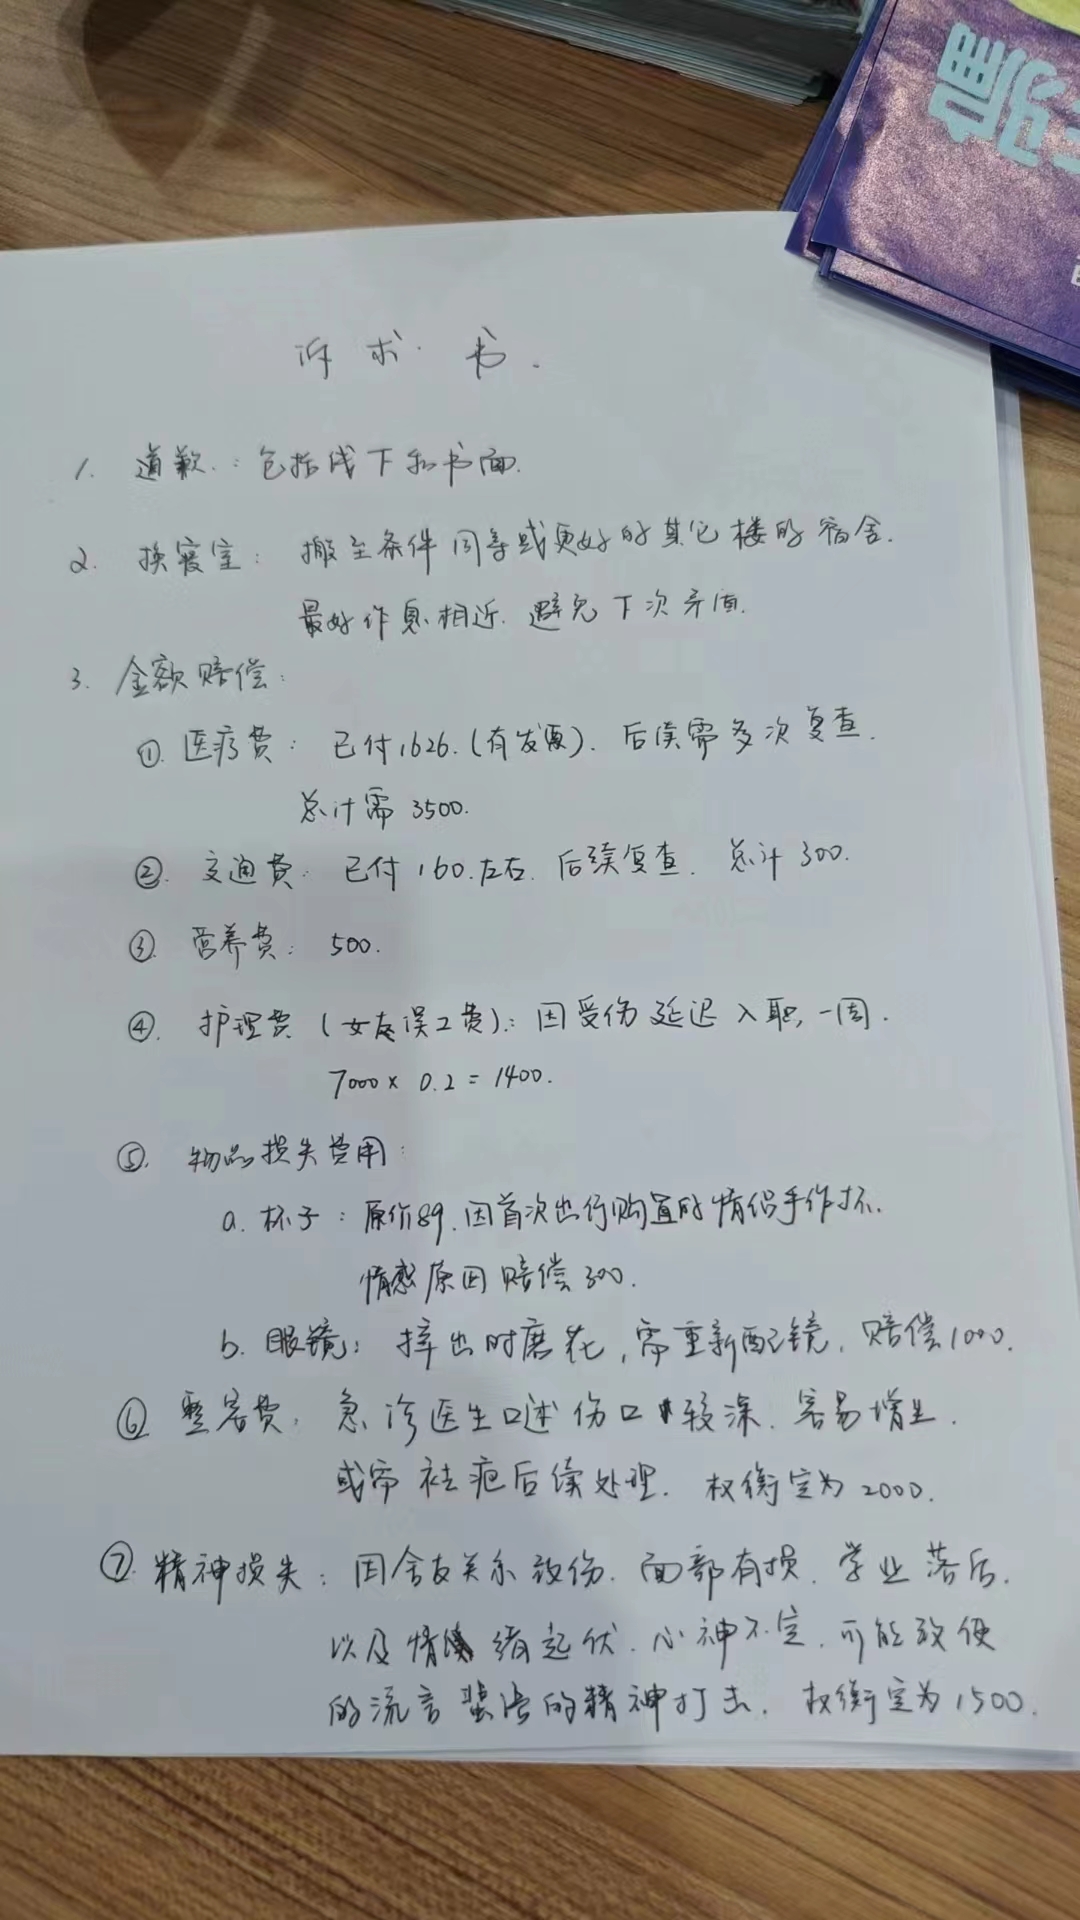 诉求书.
1. 道歉.：包括线下和书面.
2. 换寝室：搬至条件同等或更好的其它楼的宿舍.
最好作息相近.避免下次矛盾.
3. 金额赔偿：
①.医疗费：已付1626.(有发票).后续需多次复查.
总计需3500.
②.交通费：已付160.左右.后续复查.总计300.
③.营养费：500.
④.护理费(女友误工费)：因受伤延迟入职,一周.
7000×0.2=1400.
⑤.物品损失费用：
a.杯子：原价89.因首次出行购置的情侣手作杯.
情感原因赔偿300.
b.眼镜：摔出时磨花,需重新配镜,赔偿1000.
⑥整容费：急诊医生口述伤口较深.容易增生.
或需祛疤后续处理.权衡定为2000.
⑦.精神损失：因舍友关系致伤.面部有损.学业落后.
以及情绪起伏.心神不定.可能致使
的流言蜚语的精神打击.权衡定为1500.